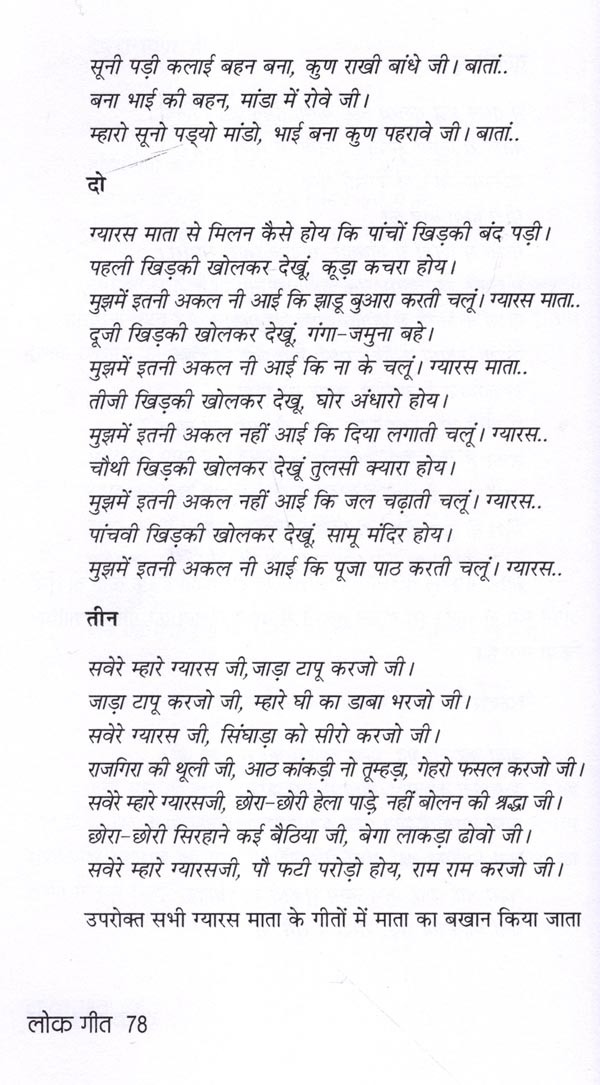 सूनी पड़ी कलाई बहन बना, कुण राखी बांधे जी। बातां..
बना भाई की बहन, मांडा में रोवे जी।
म्हारो सूनो पड्यो मांडो, भाई बना कुण पहरावे जी। बातां..
दो
ग्यारस माता से मिलन कैसे होय कि पांचों खिड़की बंद पड़ी।
पहली खिड़की खोलकर देखूं, कूड़ा कचरा होय।
मुझमें इतनी अकल नी आई कि झाडू बुआरा करती चलूं। ग्यारस माता..
दूजी खिड़की खोलकर देखूं, गंगा-जमुना बहे।
मुझमें इतनी अकल नी आई कि ना के चलूं। ग्यारस माता..
तीजी खिड़की खोलकर देखू, घोर अंधारो होय।
मुझमें इतनी अकल नहीं आई कि दिया लगाती चलूं। ग्यारस..
चौथी खिड़की खोलकर देखूं तुलसी क्यारा होय।
मुझमें इतनी अकल नहीं आई कि जल चढ़ाती चलूं। ग्यारस..
पांचवी खिड़की खोलकर देखूं, सामू मंदिर होय।
मुझमें इतनी अकल नी आई कि पूजा पाठ करती चलूं। ग्यारस..
तीन
सवेरे म्हारे ग्यारस जी, जाड़ा टापू करजो जी।
जाड़ा टापू करजो जी, म्हारे घी का डाबा भरजो जी।
सवेरे ग्यारस जी, सिंघाड़ा को सीरो करजो जी।
राजगिरा की थूली जी, आठ कांकड़ी नो तूम्हड़ा, गेहरो फसल करजो जी।
सवेरे म्हारे ग्यारसजी, छोरा-छोरी हेला पाड़े नहीं बोलन की श्रद्धा जी।
छोरा-छोरी सिरहाने कई बैठिया जी, बेगा लाकड़ा ढोवो जी।
सवेरे म्हारे ग्यारसजी, पौ फटी परोड़ो होय, राम राम करजो जी।
उपरोक्त सभी ग्यारस माता के गीतों में माता का बखान किया जाता
लोक गीत 78